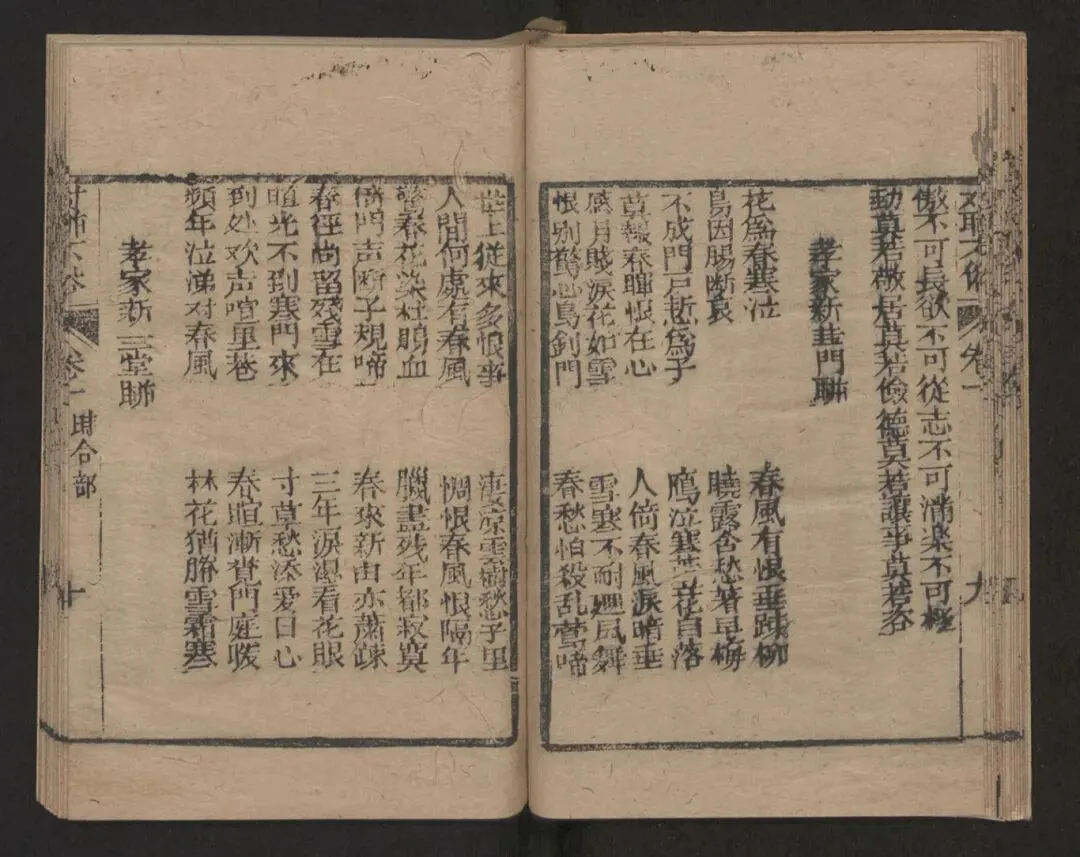 傲不可長欲不可從志不可滿樂不可極
動莫若敬居莫若儉德莫若讓事莫若咨
孝家新韮門聯
花為春寒泣
鳥因腸斷哀
不成門戶慙為子
莫報春暉恨在心
感月賤淚花如雪
恨別驚心鳥到門
春風有恨垂疎柳
曉露含愁著早梅
鴈泣寒 花自落
人倚春風淚暗垂
雪寒不耐迴風舞
春愁怕殺乱鶯啼
卷一
九
世上從來多恨事
人間何處有春風
警春花染杜鵑血
倚門声斷子規啼
春徑尚留殘雪在
暄光不到寒門來
到处欢声喧里巷
頻年泣涕对春風
孝家新 堂聯
凄凉雲樹愁子里
惆恨春風恨隔年
臘盡残年都寂寞
春來新由亦蕭疎
三年淚濕看花眼
寸草愁添愛日心
春暄漸覺門庭暖
林花猶勝雪霜寒
卷一
時合部
十